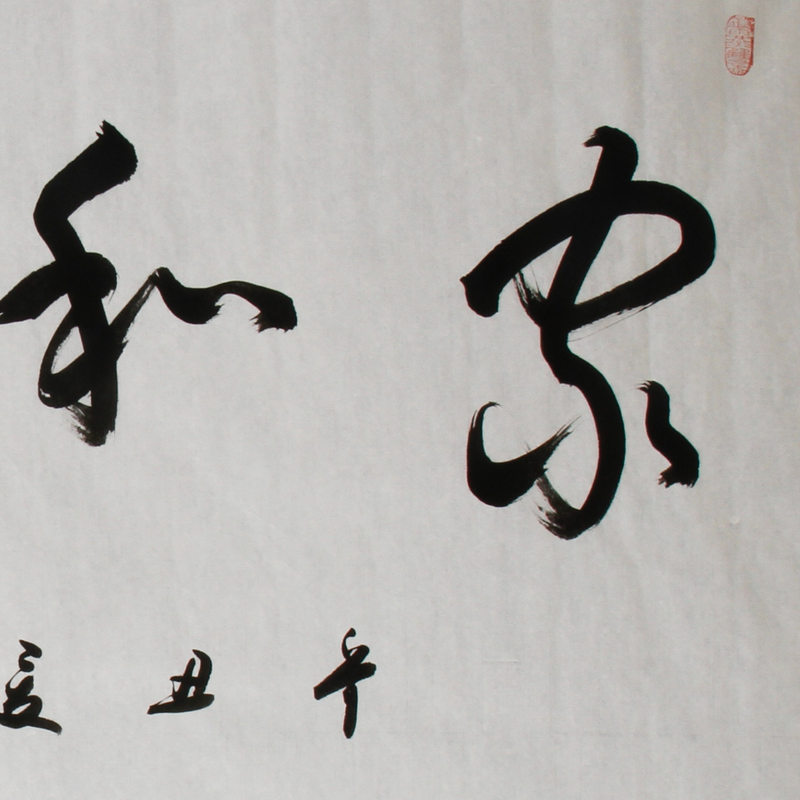 家和
辛丑夏